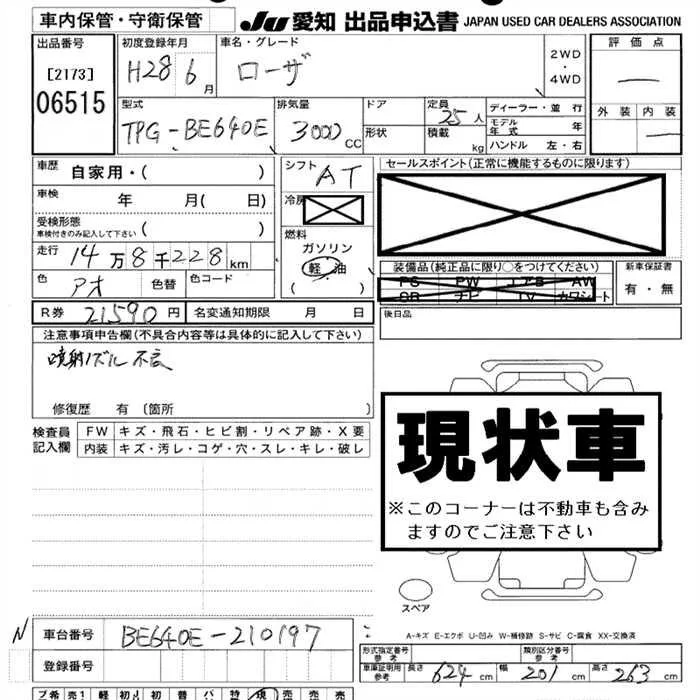 車内保管・守衛保管 JU 愛知 出品申込書 JAPAN USED CAR DEALERS ASSOCIATION
出品番号 初度登録年月 車名・グレード 2WD・4WD 評価点
[2173] H28 6月 ローザ
06515 外装 内装
型式 排気量 ドア 定員 25人 ディーラー・並行
TPG-BE640E 3000CC 形状 積載 kg モデル年式 年
ハンドル 左・右
車歴 自家用・( ) シフト AT セールスポイント(正常に機能するものに限ります)
車検 年 月( 日) 冷房
受検形態
車検付きのみ記入して下さい( ) 燃料
走行 14万8千228km ガソリン
軽油
( )
色 アオ 色替 色コード 装備品(純正品に限り○をつけてください) 新車保証書
PS PW エアB AW 有・無
SR ナビ TV カワシート
R券 21590円 名変通知期限 月 日 後日品
注意事項申告欄(不具合内容等は具体的に記入して下さい)
噴射ノズル 不良
修復歴 有 〔箇所 〕
検査員記入欄 FW キズ・飛石・ヒビ割・リペア跡・X要
内装 キズ・汚レ・コゲ・穴・スレ・キレ・破レ
現状車
※このコーナーは不動車も含み
ますのでご注意下さい
スペア
N 車台番号 BE640E-210197
A-キズ E-エクボ U-凹み W-補修跡 S-サビ C-腐食 XX-交換済
登録番号 形式指定番号参考 類別区分番号参考
車庫証明用参考 長さ 624cm 幅 201cm 高さ 263cm